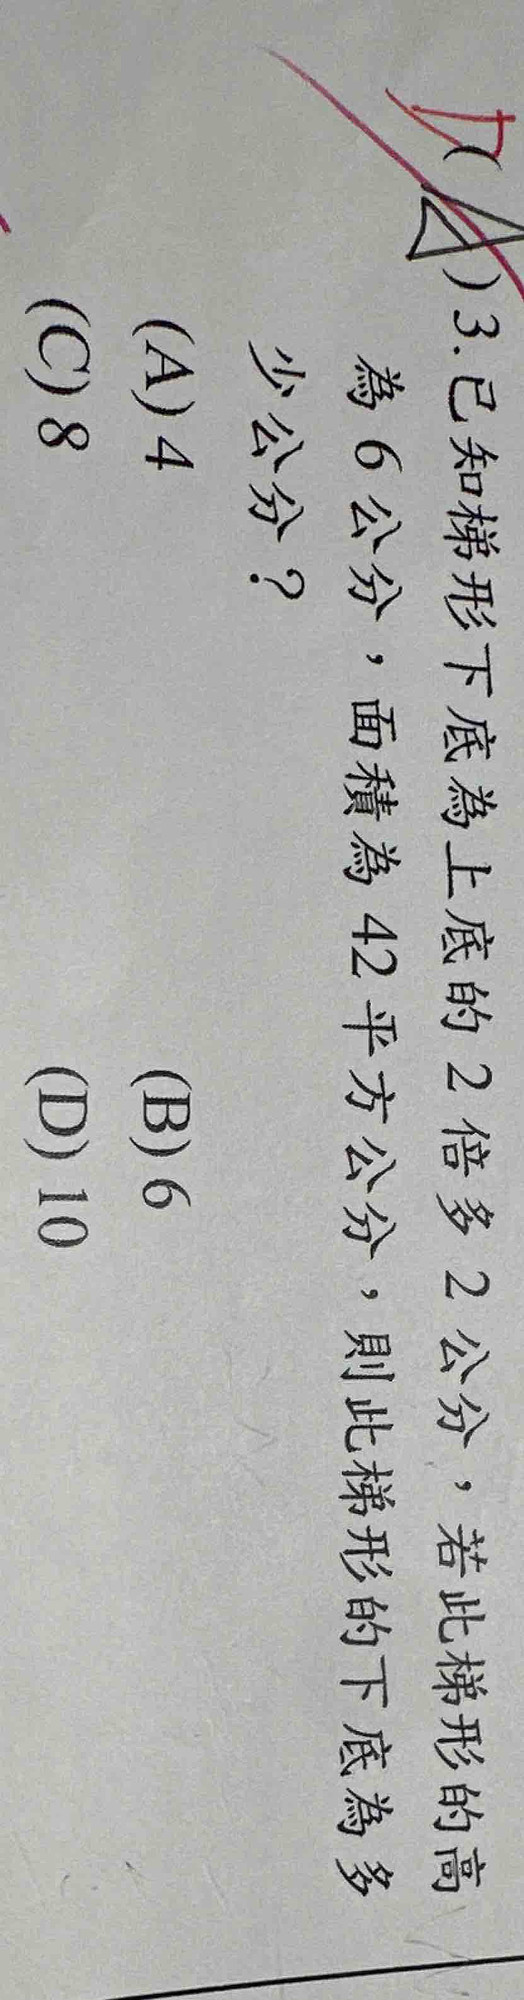 ( A )3.已知梯形下底為上底的2倍多2公分，若此梯形的高
為6公分，面積為42平方公分，則此梯形的下底為多
少公分？
(A)4 (B)6
(C)8 (D)10